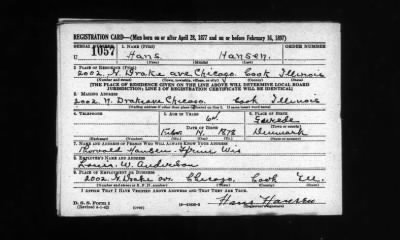 REGISTRATION CARD—(Men born on or after April 28, 1877 and on or before February 16, 1897)
SERIAL NUMBER 1. NAME (Print) ORDER NUMBER
U 1057 Hans Hansen
(First) (Middle) (Last)
2. PLACE OF RESIDENCE (Print)
2002 N. Drake ave Chicago Cook Illinois
(Number and street) (Town, township, village, or city) (County) (State)
[THE PLACE OF RESIDENCE GIVEN ON THE LINE ABOVE WILL DETERMINE LOCAL BOARD
JURISDICTION; LINE 2 OF REGISTRATION CERTIFICATE WILL BE IDENTICAL]
3. MAILING ADDRESS
2002 N. Drake ave Chicago Cook Illinois
4. TELEPHONE 5. AGE IN YEARS 6. PLACE OF BIRTH
64
DATE OF BIRTH
1878 Denmark
7. NAME AND ADDRESS OF PERSON WHO WILL ALWAYS KNOW YOUR ADDRESS
Thorvald Hansen Wis
8. EMPLOYER'S NAME AND ADDRESS
Louis W. Anderson
9. PLACE OF EMPLOYMENT OR BUSINESS
2002 N. Drake av. Chicago Cook Ill.
(Number and street or R. F. D. number) (Town) (County) (State)
I AFFIRM THAT I HAVE VERIFIED ABOVE ANSWERS AND THAT THEY ARE TRUE.
D. S. S. Form 1
Hans Hansen
(Registrant's signature)